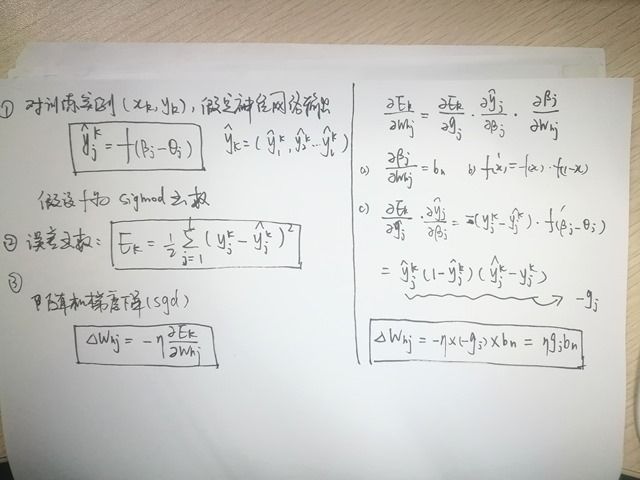 ① 对训练实例 (xₖ, yₖ), 假定神经网络输出
ŷⱼᵏ = f(βⱼ - θⱼ)  ŷₖ = (ŷ₁ᵏ, ŷ₂ᵏ … ŷₗᵏ)
假设 f 为 sigmod 函数
② 误差函数: Eₖ = 1/2 Σⱼ₌₁ˡ (yⱼᵏ - ŷⱼᵏ)²
③
随机梯度下降 (sgd)
△Whj = -η ∂Eₖ/∂Whj
∂Eₖ/∂Whj = ∂Eₖ/∂ŷⱼ · ∂ŷⱼ/∂βⱼ · ∂βⱼ/∂Whj
a) ∂βⱼ/∂Whj = bₕ  b) f'(x) = f(x) · f(1-x)
c) ∂Eₖ/∂ŷⱼ · ∂ŷⱼ/∂βⱼ = -(yⱼᵏ - ŷⱼᵏ) · f'(βⱼ - θⱼ)
= ŷⱼᵏ (1 - ŷⱼᵏ) (ŷⱼᵏ - yⱼᵏ)
→ -gⱼ
△Whj = -η × (-gⱼ) × bₕ = ηgⱼbₕ